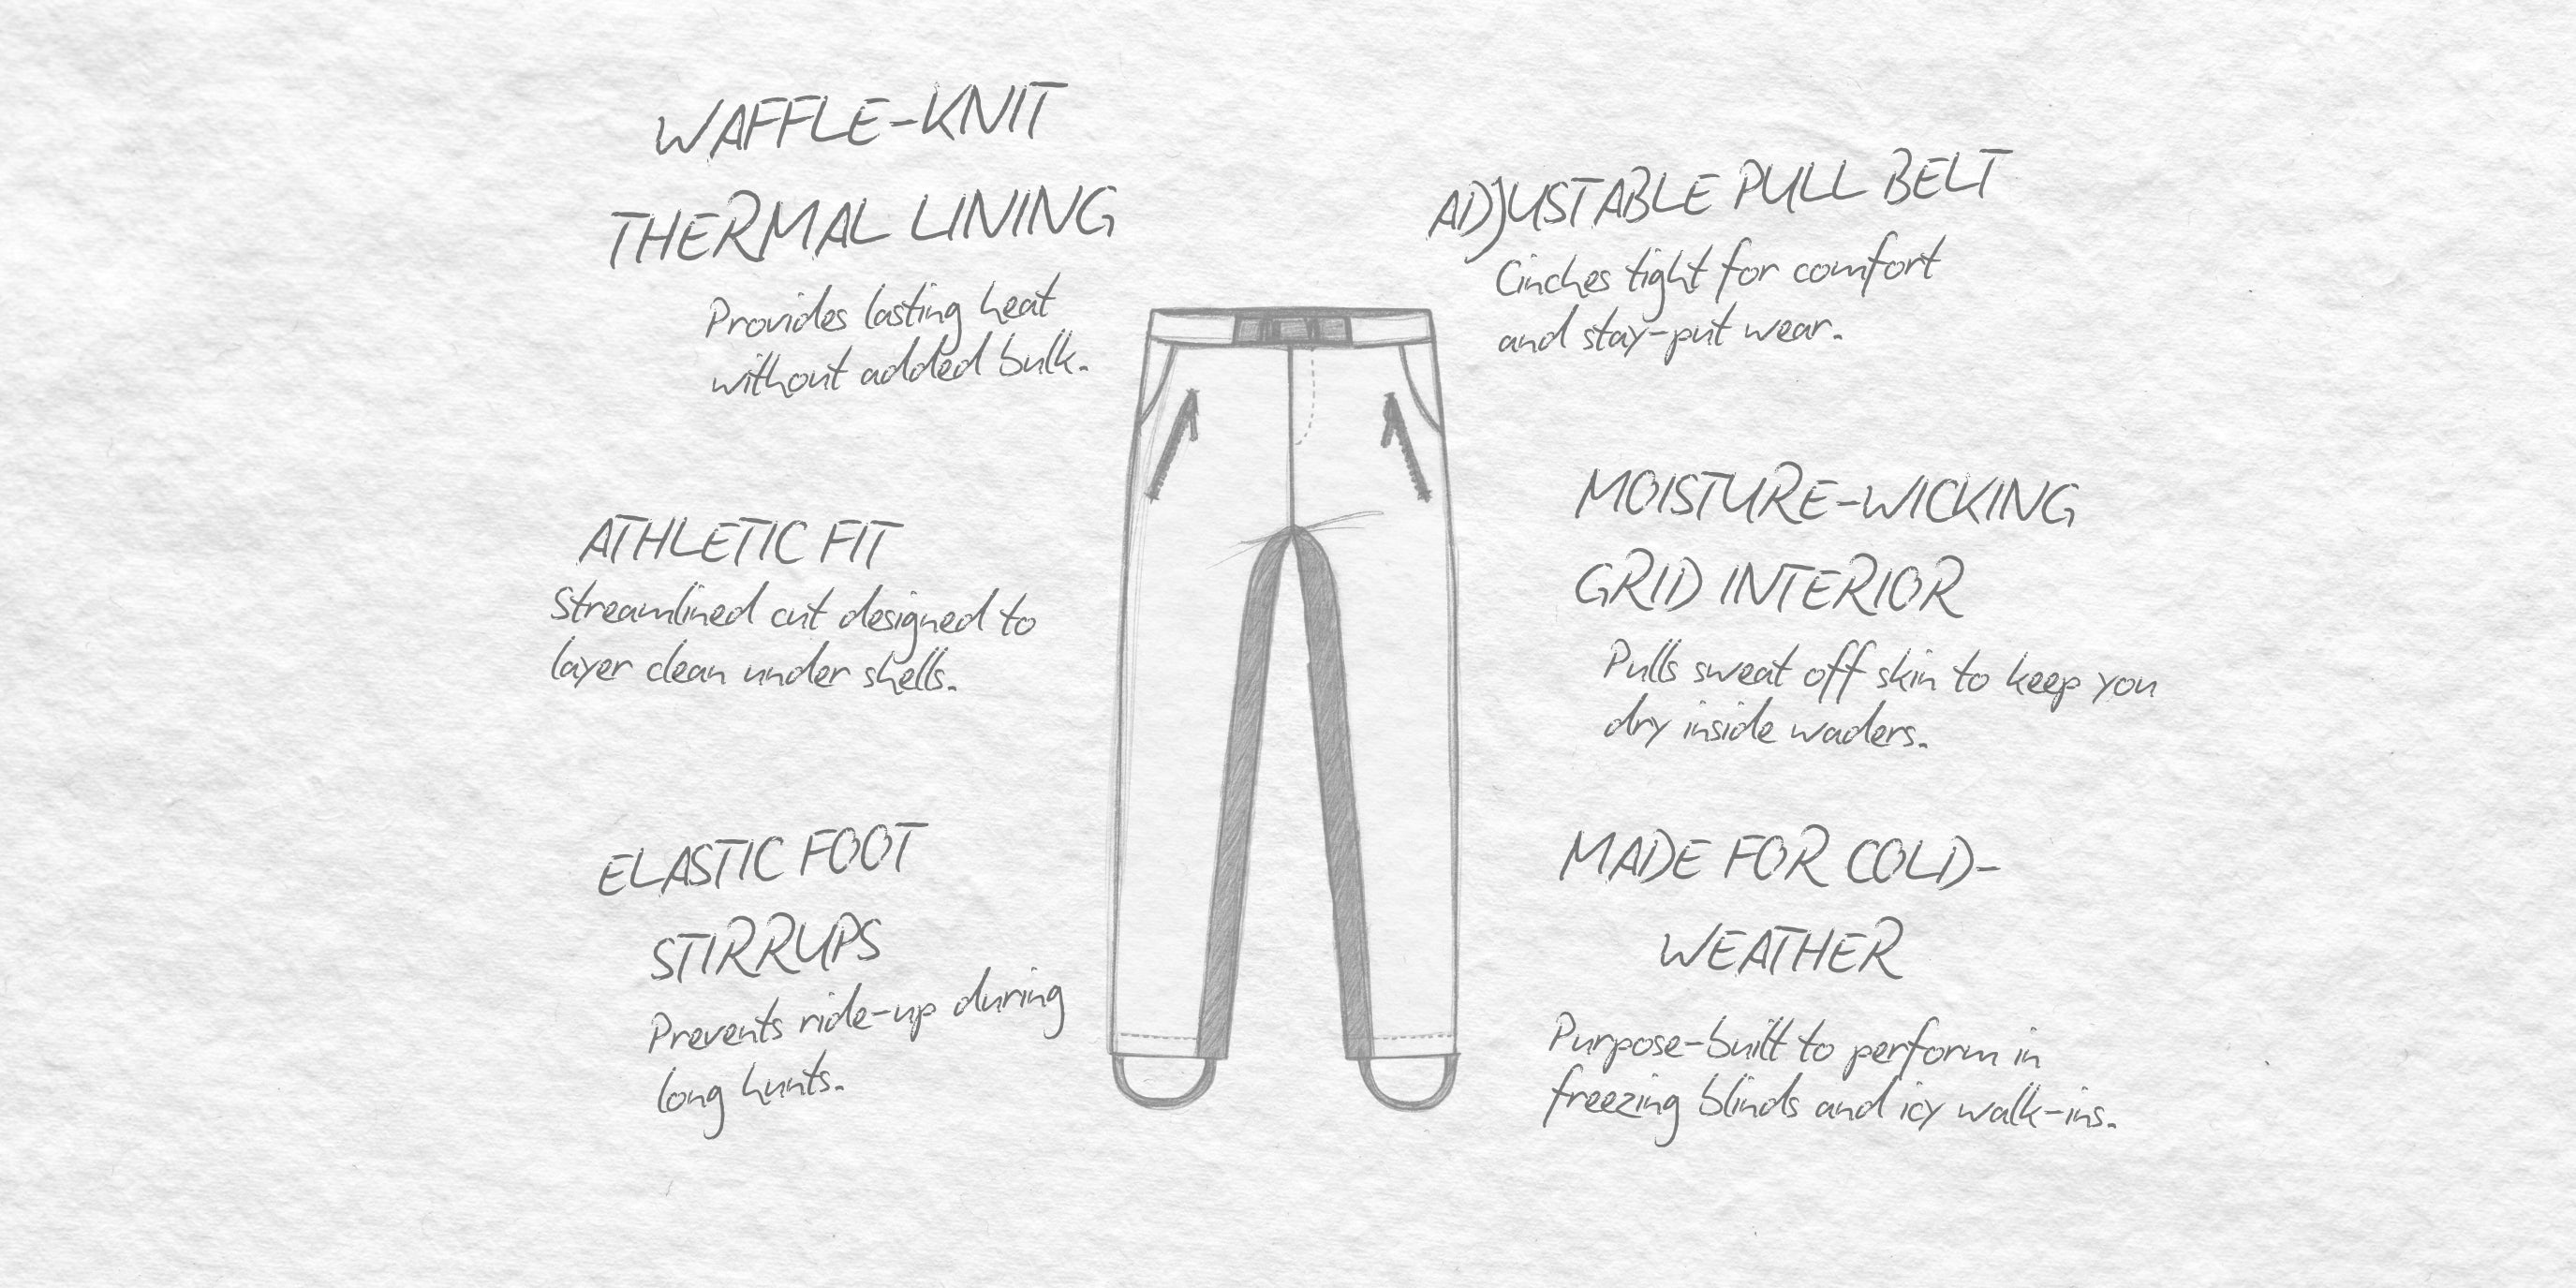 WAFFLE-KNIT
THERMAL LINING
Provides lasting heat
without added bulk.
ATHLETIC FIT
Streamlined cut designed to
layer clean under shells.
ELASTIC FOOT
STIRRUPS
Prevents ride-up during
long hunts.
ADJUSTABLE PULL BELT
Cinches tight for comfort
and stay-put wear.
MOISTURE-WICKING
GRID INTERIOR
Pulls sweat off skin to keep you
dry inside waders.
MADE FOR COLD-
WEATHER
Purpose-built to perform in
freezing blinds and icy walk-ins.